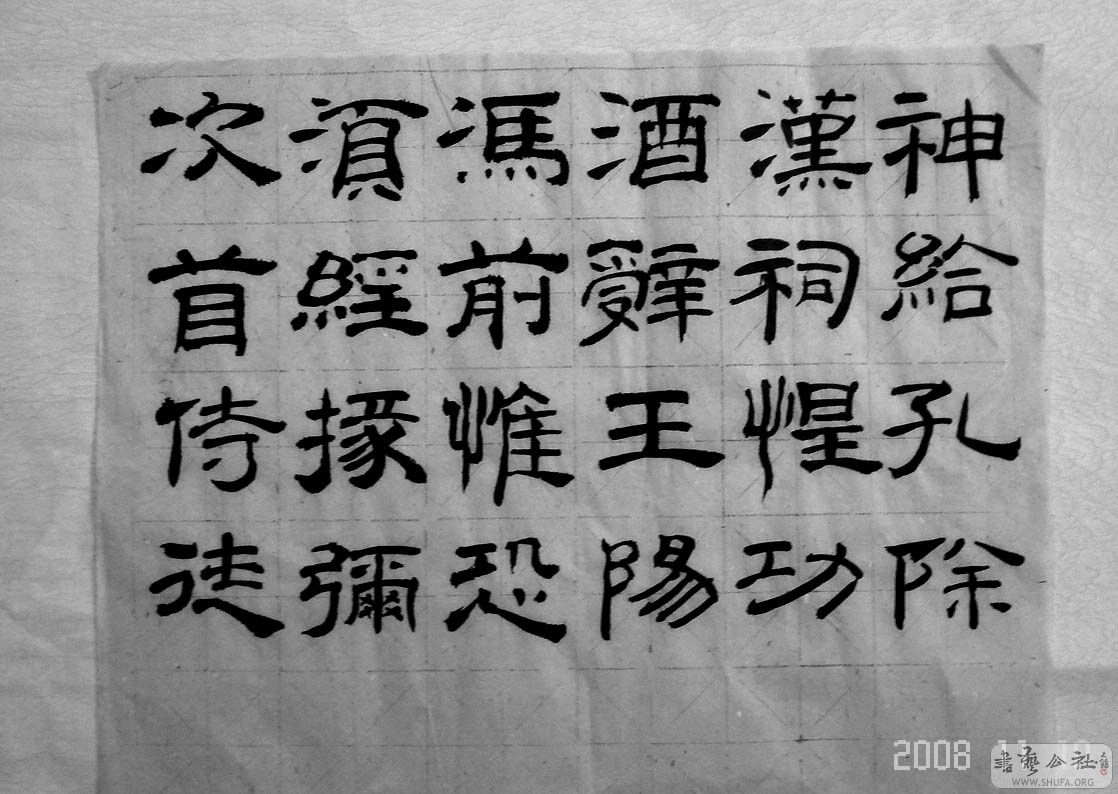 神給孔除
漢祠惶功
酒辤王陽
馮前惟恐
湏經掾彌
次首侍徒
2008
書藝公社
WWW.SHUFA.ORG